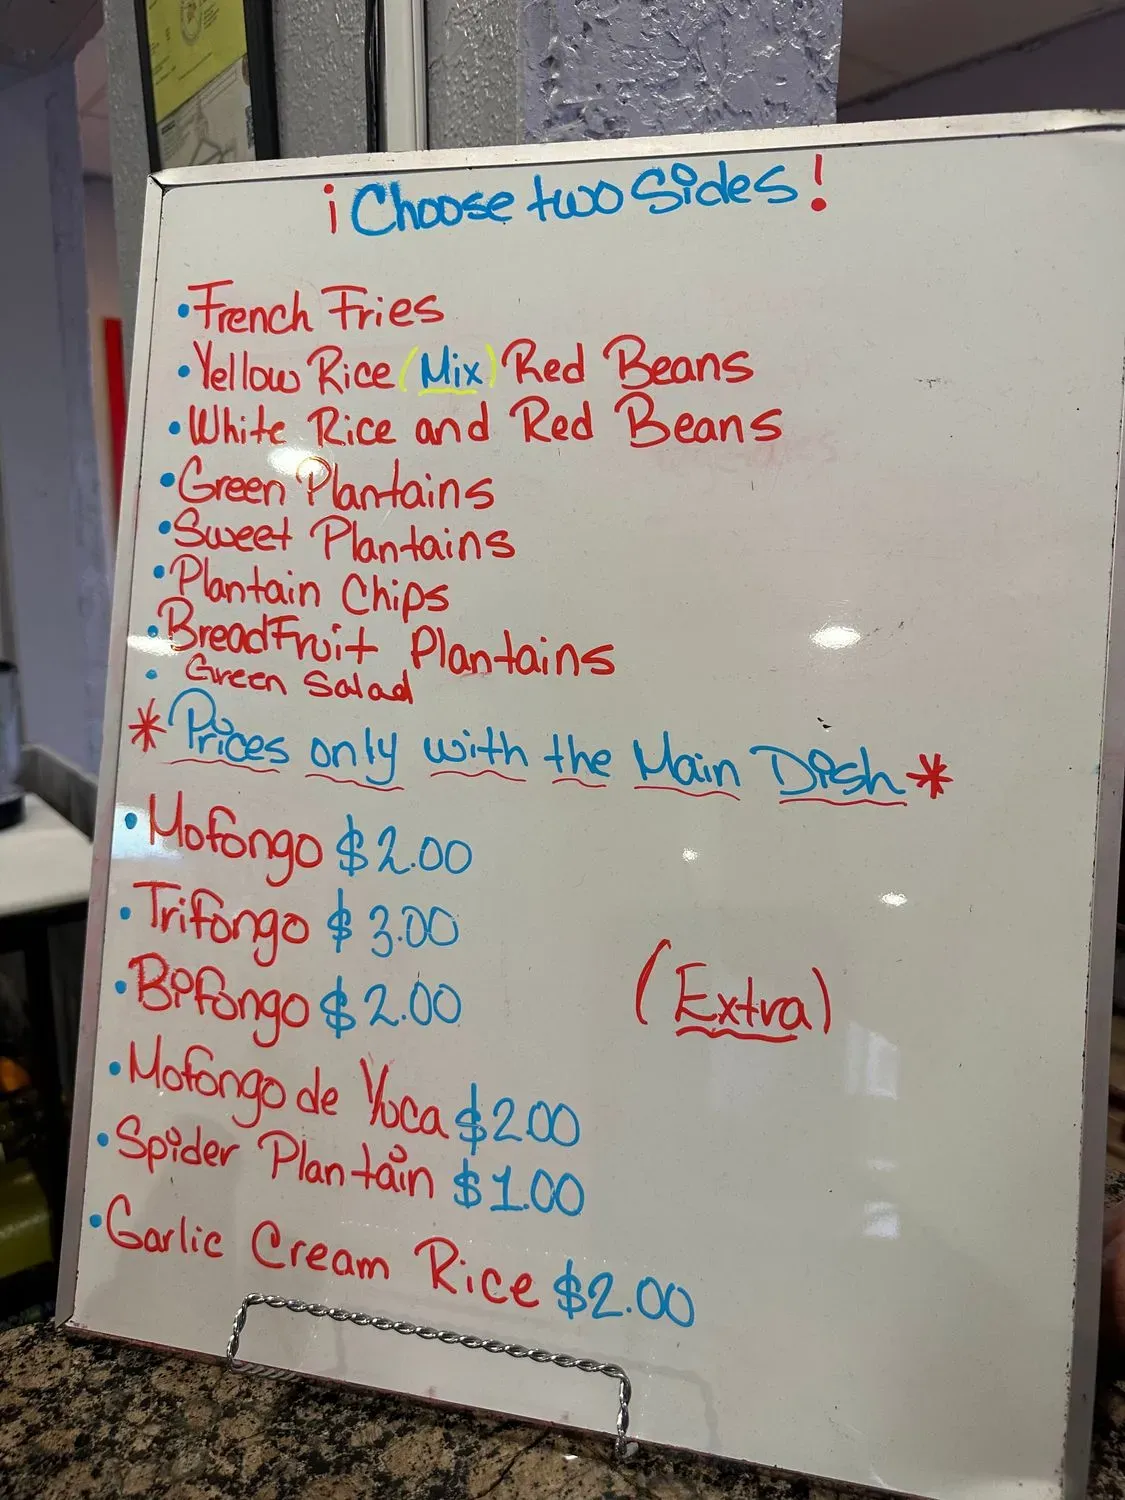 ¡Choose two Sides!
•French Fries
•Yellow Rice (Mix) Red Beans
•White Rice and Red Beans
•Green Plantains
•Sweet Plantains
•Plantain Chips
•BreadFruit Plantains
• Green Salad
*Prices only with the Main Dish*
•Mofongo $2.00
•Trifongo $3.00
•Bifongo $2.00
(Extra)
•Mofongo de Yuca $2.00
•Spider Plantain $1.00
•Garlic Cream Rice $2.00